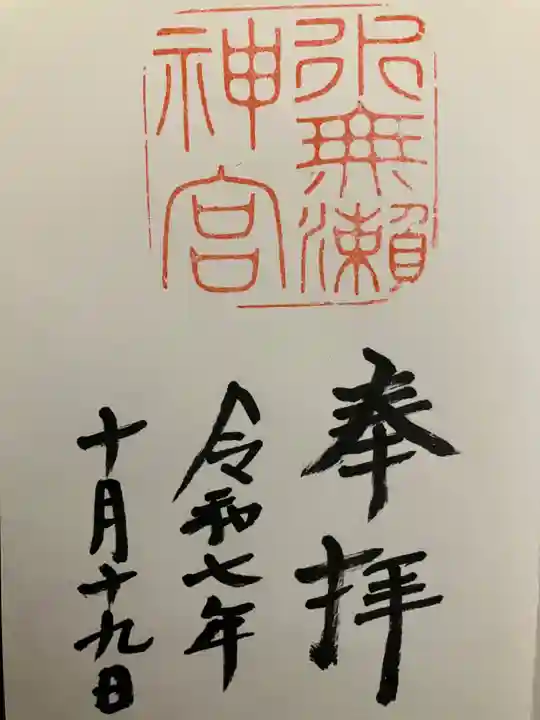 水無瀨
神宮
奉拝
令和七年
十月十九日